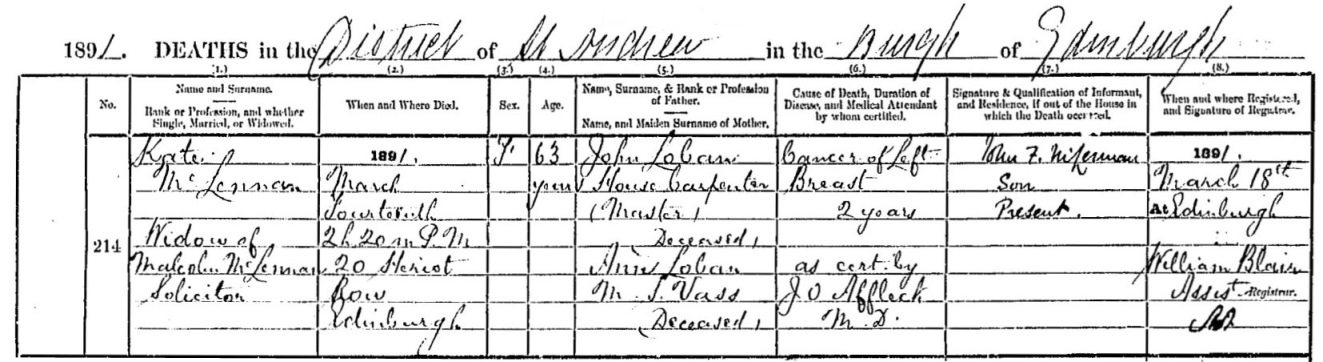 1891. DEATHS in the District of St Andrew in the Burgh of Edinburgh
(1.) (2.) (3.) (4.) (5.) (6.) (7.) (8.)
No.
Name and Surname.
Rank or Profession, and whether
Single, Married, or Widowed.
When and Where Died.
Sex.
Age.
Name, Surname, & Rank or Profession
of Father.
Name, and Maiden Surname of Mother.
Cause of Death, Duration of
Disease, and Medical Attendant
by whom certified.
Signature & Qualification of Informant,
and Residence, if out of the House in
which the Death occurred.
When and where Registered,
and Signature of Registrar.
214
Kate
McLennan
Widow of
Malcolm McLennan
Solicitor
1891.
March
Fourteenth
2h 20m P.M.
20 Heriot
Row
Edinburgh
F.
63
years
John Loban
House Carpenter
(Master)
Deceased,
Ann Loban
M. S. Vass
Deceased,
Cancer of Left
Breast
2 years
as cert. by
J O Affleck
M. D.
John F. McLennan
Son
Present.
1891.
March 18th
At Edinburgh
William Blair
Assist. Registrar.